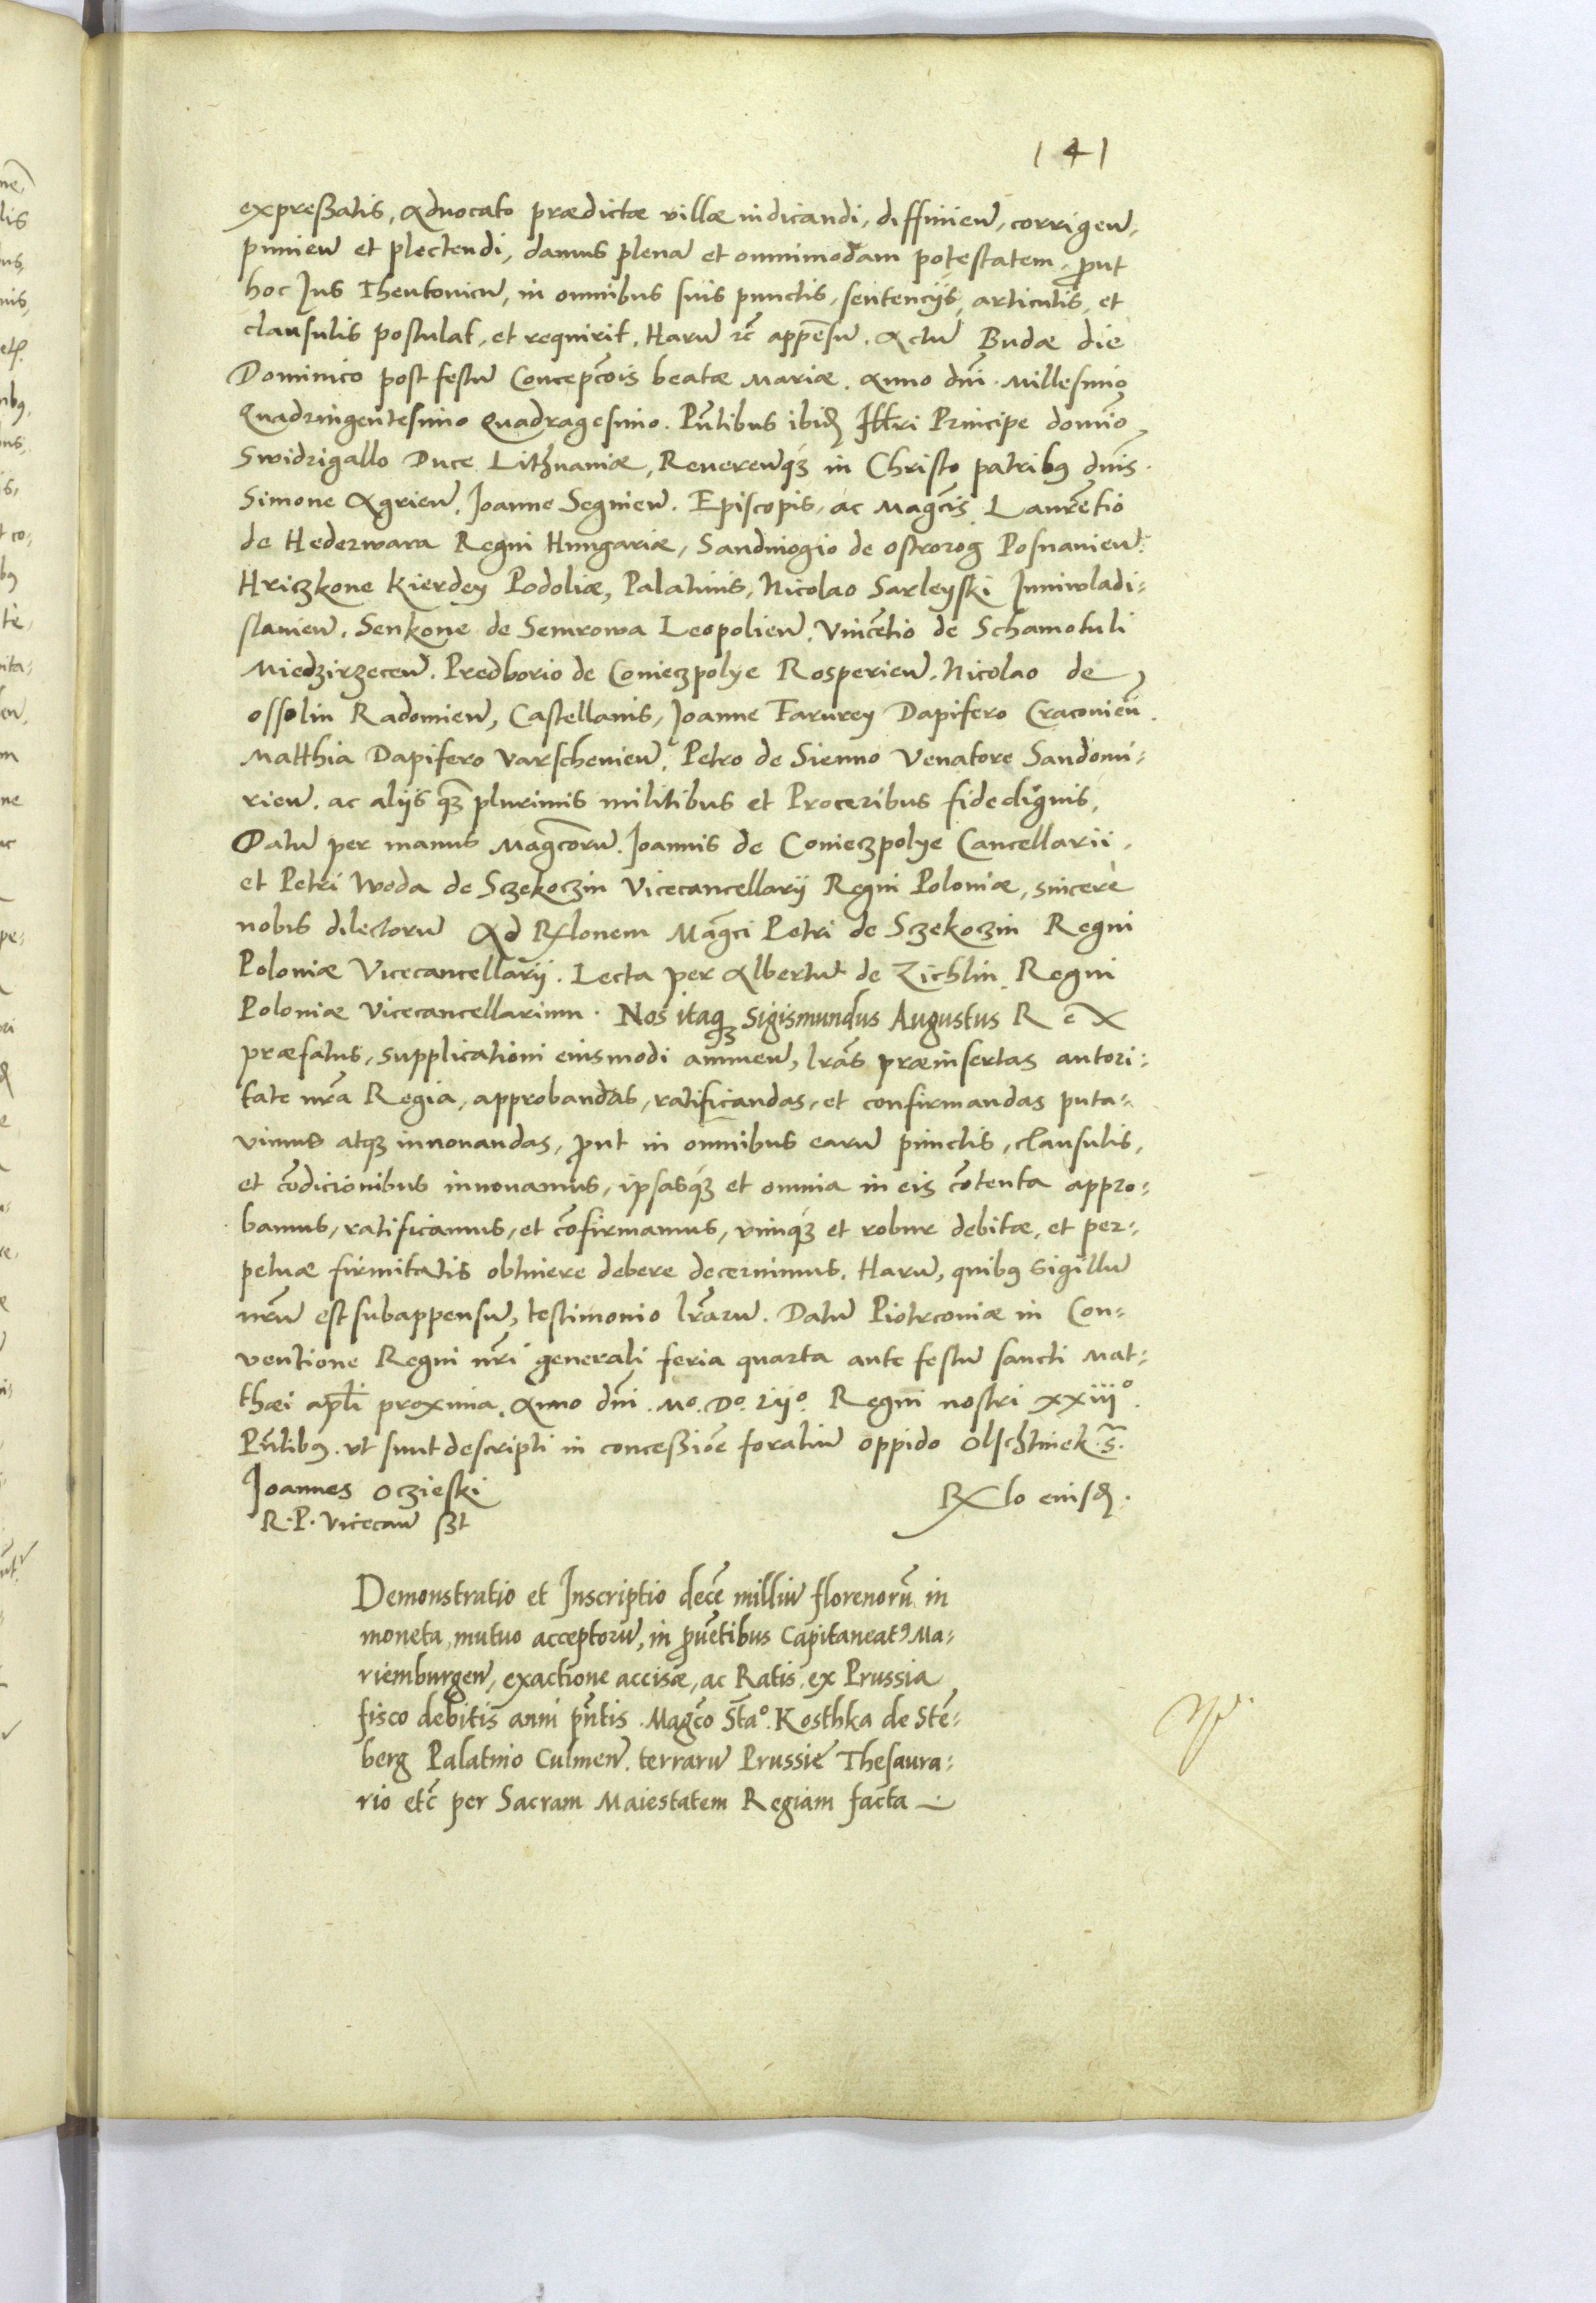 141
expreßatis, Aduocato prædictæ villæ iudicandi, diffinien̄, corrigen̄,
punien̄ et plectendi, damus plenā et omnimodam potestatem, ꝓut
hoc Jus Theutonicū, in omnibus suis punctis, sentencijs, articulis, et
clausulis postulat, et requirit. Harū ꝛc̄ appēsū. Actū Budæ die
Dominico post festū Concepc̄ois beatæ Mariæ. Anno dn̄i Millesimo
Quadringentesimo Quadragesimo. Pn̄tibus ibid̄ Illri Principe domīo
Swidrigallo Duce Lithuaniæ, Reueren̄qꝫ in Christo patribꝰ dn̄is.
Simone Agrien̄, Joanne Segnien̄. Episcopis, ac Magc̄is Laurētio
de Hederwara Regni Hungariæ, Sandiuogio de Ostrorog Posnanien̄:
Hriczkone Kierdey Podoliæ, Palatinis, Nicolao Sarleyski Juniwladi:
slauien̄, Senkone de Semrowa Leopolien̄, Vincētio de Schamotuli
Miedzirzecen̄. Predborio de Conieczpolye Rosperien̄. Nicolao de
Ossolin Radomien̄, Castellanis, Joanne Farurey Dapifero Cracouien̄.
Matthia Dapifero Varschouien̄, Petro de Sienno Venatore Sandomi:
rien̄. ac alijs qꝫ plurimis militibus et Proceribus fidedignis,
Datū per manus Magc̄orū. Joannis de Conieczpolye Cancellarii.
et Petri Woda de Sczekoczin Vicecancellarij Regni Poloniæ, sincerè
nobis dilectorū Ad Rl̄onem Magc̄i Petri de Sczekoczin Regni
Poloniæ Vicecancellarij. Lecta per Albertū de Zichlin Regni
Poloniæ Vicecancellarium. Nos itaqꝫ Sigismundus Augustus Rex
præfatus, supplicationi eiusmodi annuen̄, lr̄as præinsertas autori:
tate nr̄a Regia, approbandas, ratificandas, et confirmandas puta-
uimus atqꝫ innouandas, ꝓut in omnibus earū punctis, clausulis,
et cōdicionibus innouamus, ipsasqꝫ et omnia in eis cōtenta appro:
bamus, ratificamus, et cōfirmamus, vimqꝫ et robur debitæ, et per:
petuæ firmitatis obtinere debere decernimus. Harū, quibꝰ sigillū
nr̄m est subappensū, testimonio lr̄arū. Datū Piotrcouiæ in Con:
uentione Regni nr̄i generali feria quarta ante festū sancti Mat:
thæi apl̄i proxima. Anno dn̄i. Mº. Dº. Lijº. Regni nostri xxiijº.
Pn̄tibꝰ. vt sunt descripti in conceßiōe foraliū oppido Olschtinek. s̄.
Joannes Oczieski
R. P. Vicecan̄ sßt
Rl̄o eiusd̄.
Demonstratio et Inscriptio decē milliū florenorū in
moneta, mutuo acceptorū, in ꝓuētibus Capitaneatꝰ Ma-
riemburgen̄, exactione accisæ, ac Ratis, ex Prussia
fisco debitis anni pn̄tis. Magc̄o Stāº. Kosthka de Stē-
berg Palatino Culmen̄. terrarū Prussie Thesaura:
rio etc̄ per Sacram Maiestatem Regiam facta